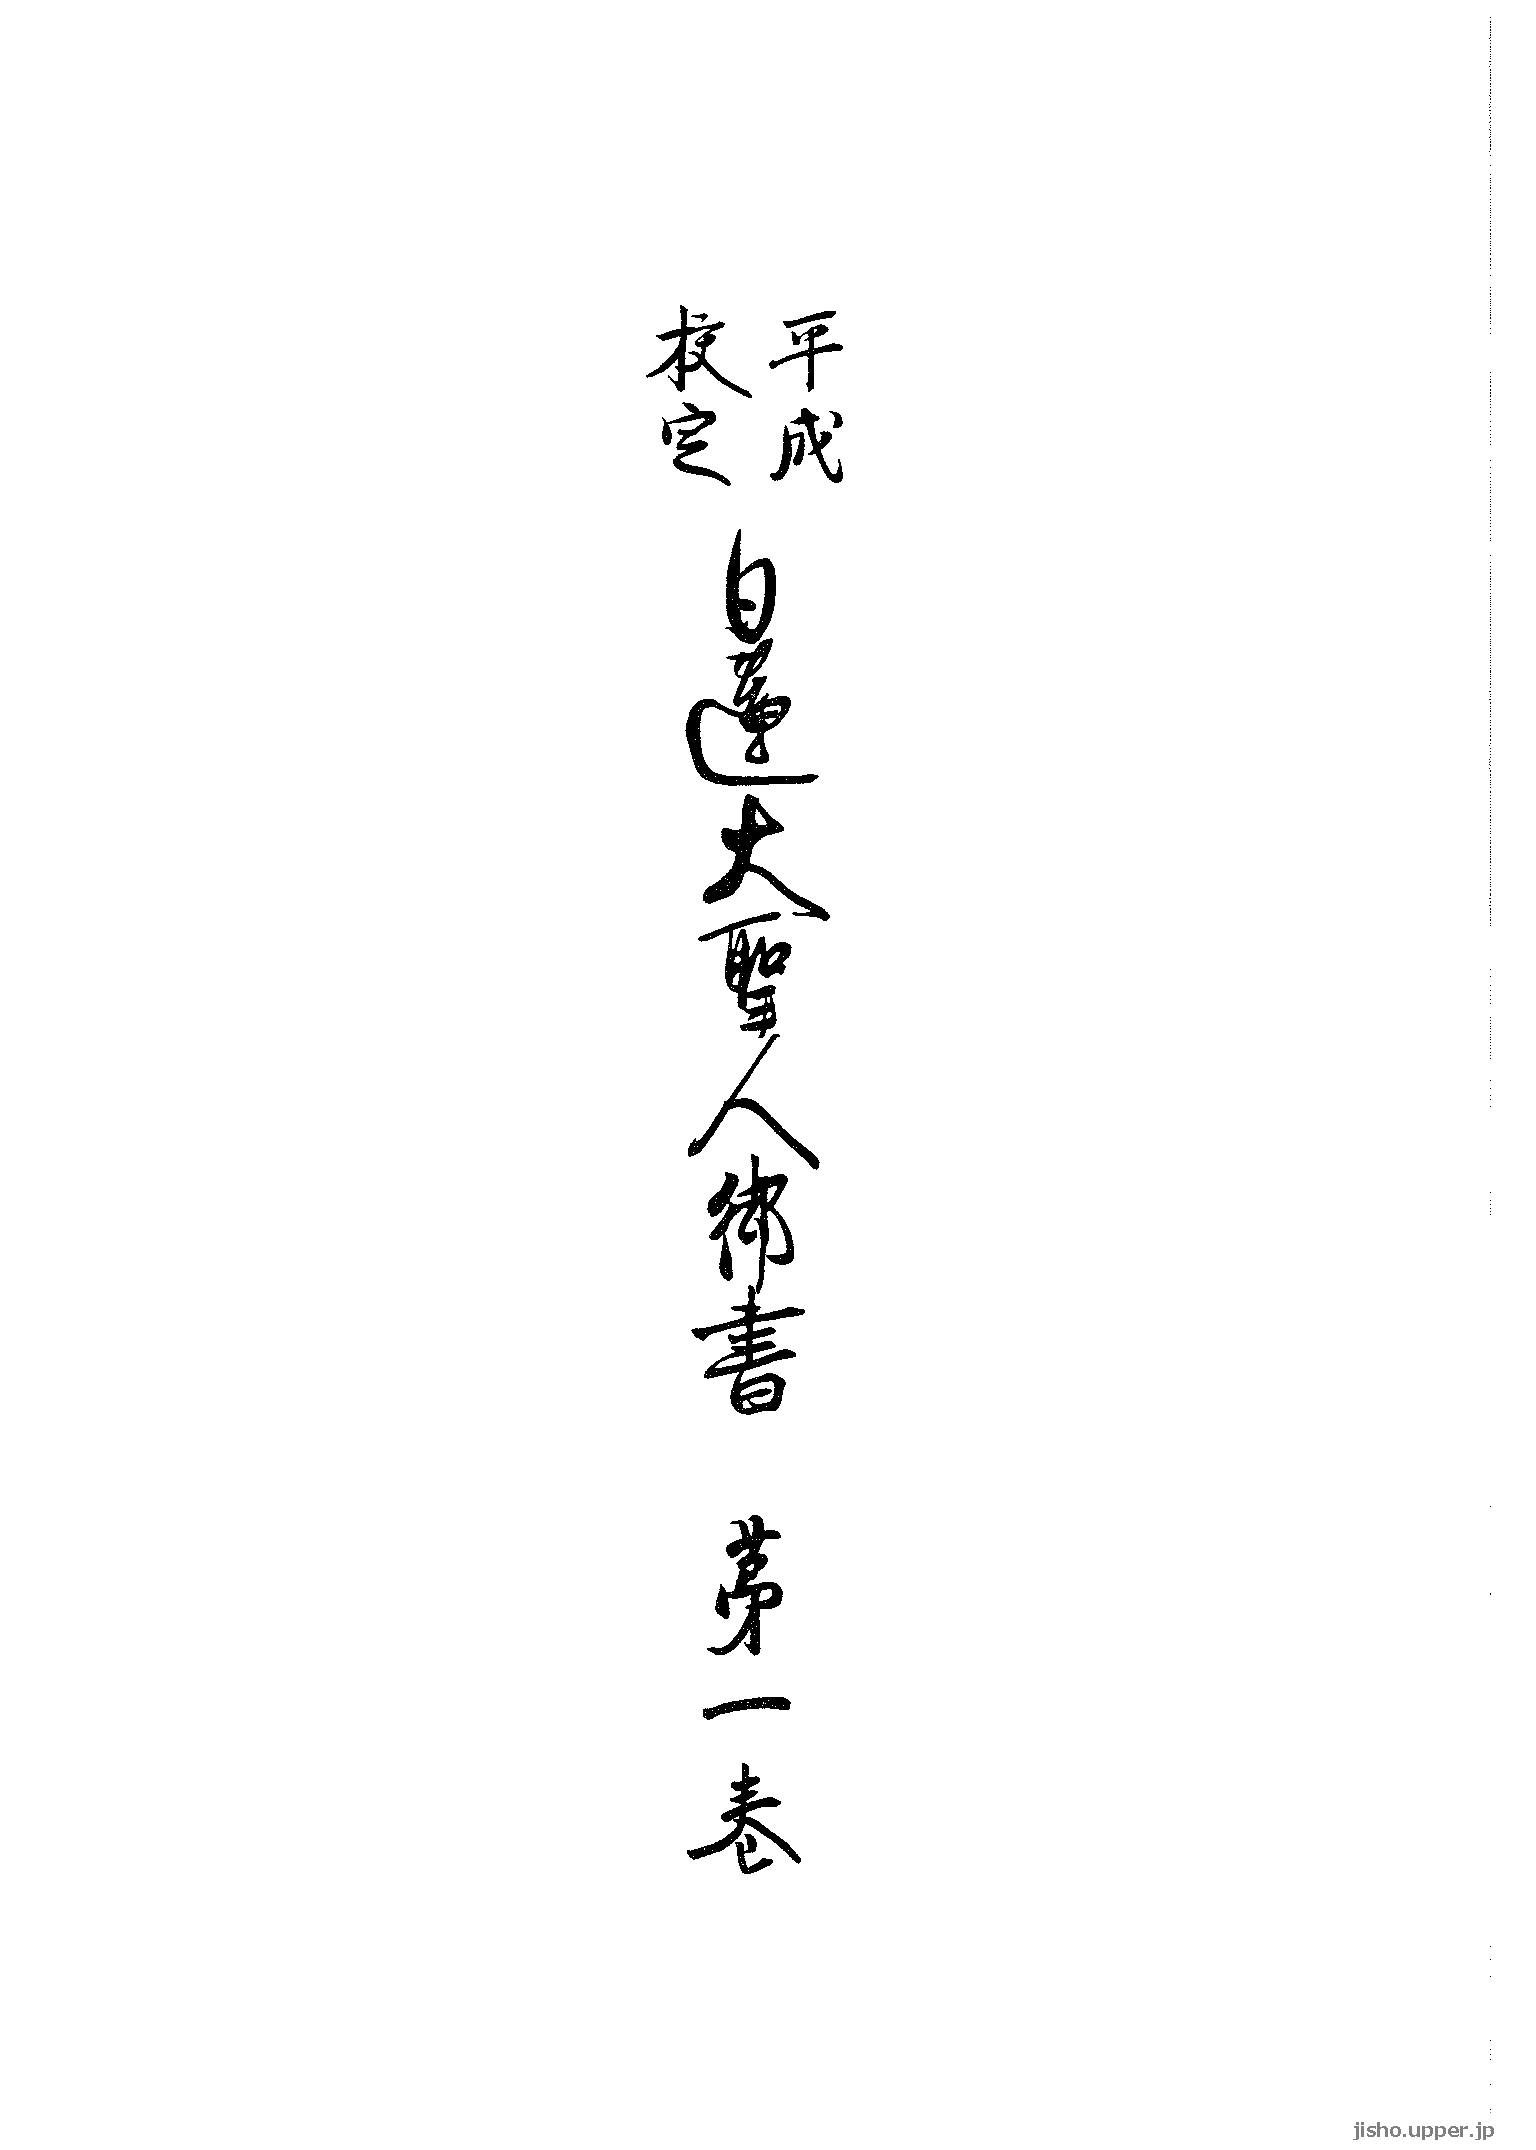 平成
校定
日蓮大聖人御書 第一巻
jisho.upper.jp